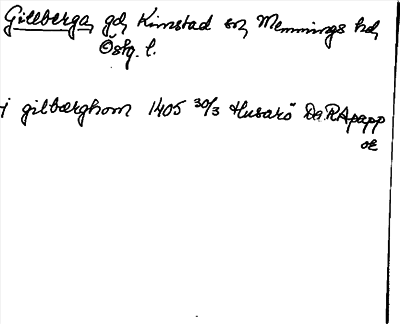 Gillberga, gd, Kimstad sn, Memmings hd,
Östg. l.
i gilbærghom 1405 30/3 Husarö Da. RA papp
OE